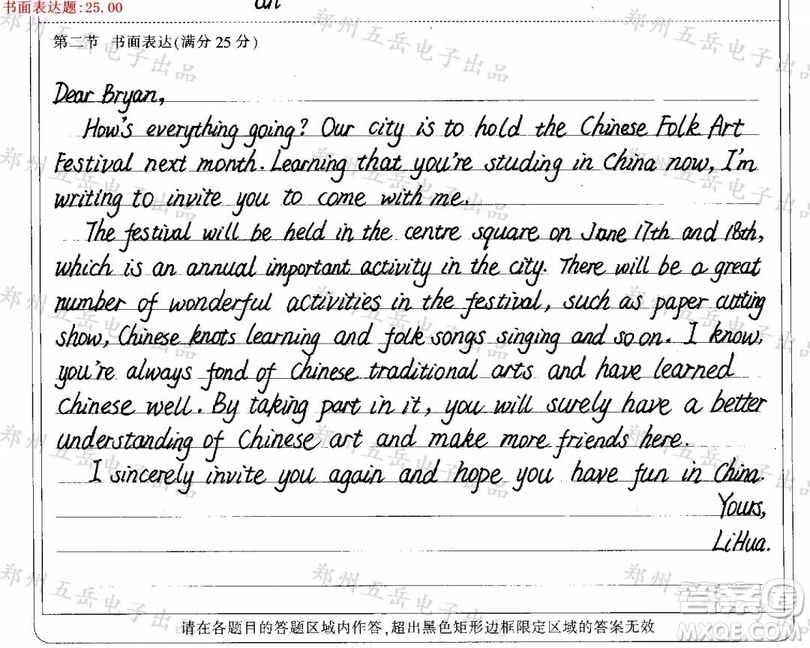 书面表达题:25.00
an
第二节 书面表达(满分25分)
Dear Bryan,
How's everything going? Our city is to hold the Chinese Folk Art
Festival next month. Learning that you're studing in China now, I'm
writing to invite you to come with me.
The festival will be held in the centre square on June 17th and 18th,
which is an annual important activity in the city. There will be a great
number of wonderful activities in the festival, such as paper cutting
show, Chinese knots learning and folk songs singing and so on. I know,
you're always fond of Chinese traditional arts and have learned
Chinese well. By taking part in it, you will surely have a better
understanding of Chinese art and make more friends here.
I sincerely invite you again and hope you have fun in China.
Yours,
LiHua.
请在各题目的答题区域内作答,超出黑色矩形边框限定区域的答案无效
郑州五岳电子出品
答案圈
MXQE.COM